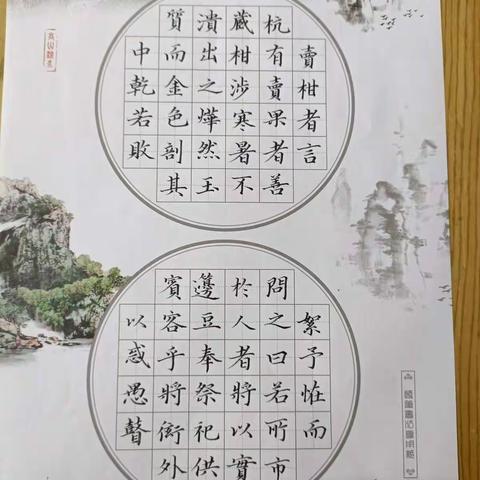 賣柑者言
杭有賣果者善
藏柑涉寒暑不
潰出之燁然玉
質而金色剖其
中乾若敗
絮予恠而
問之曰若所市
於人者將以實
邊豆奉祭祀供
賓客乎將衒外
以惑愚瞽